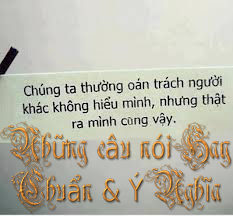 Chúng ta thường oán trách người
khác không hiểu mình, nhưng thật
ra mình cũng vậy.
Những câu nói Hay
Chuẩn & Ý Nghĩa